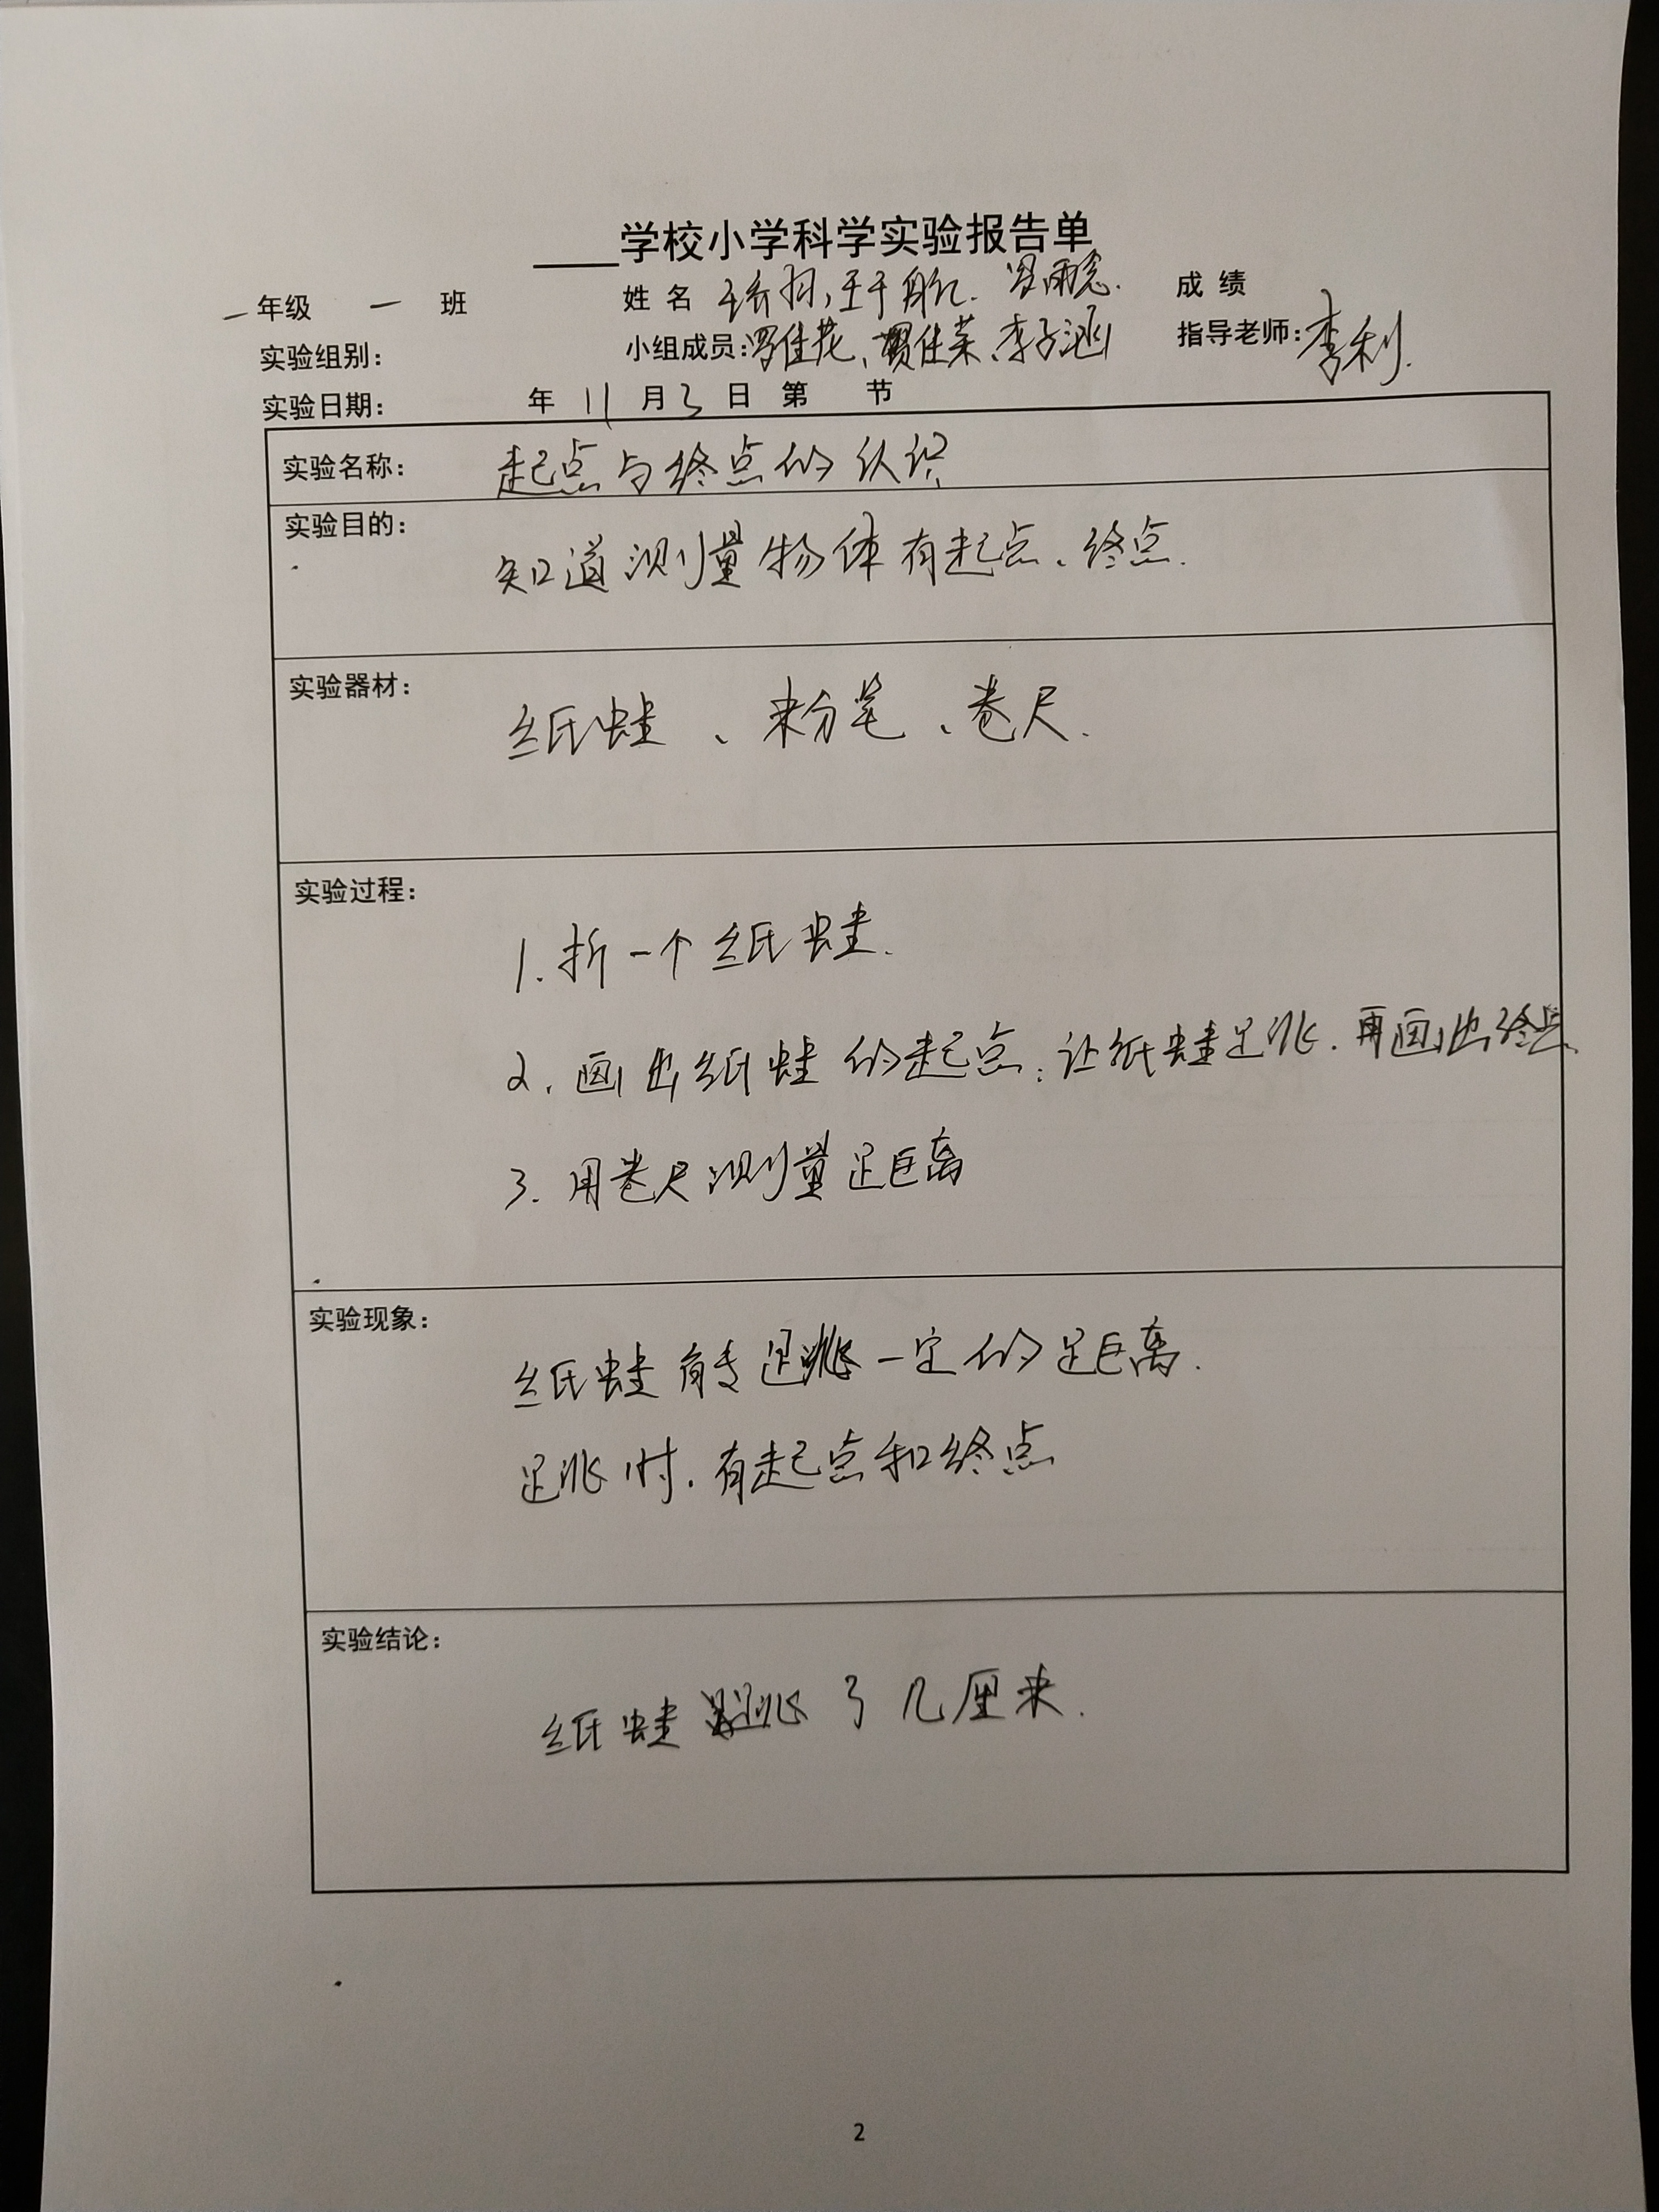 ____学校小学科学实验报告单
一年级 一 班 姓 名 成 绩
实验组别: 小组成员:罗佳花、贾佳荣、李子涵 指导老师:李利.
实验日期: 年 11 月 3 日 第 节
实验名称: 起点与终点的认识
实验目的:
知道测量物体有起点、终点.
实验器材:
纸蛙、粉笔、卷尺.
实验过程:
1.折一个纸蛙.
2.画出纸蛙的起点.让纸蛙跳.再画出终点.
3.用卷尺测量距离
实验现象:
纸蛙能跳一定的距离.
跳时.有起点和终点
实验结论:
纸蛙跳了几厘米.
2